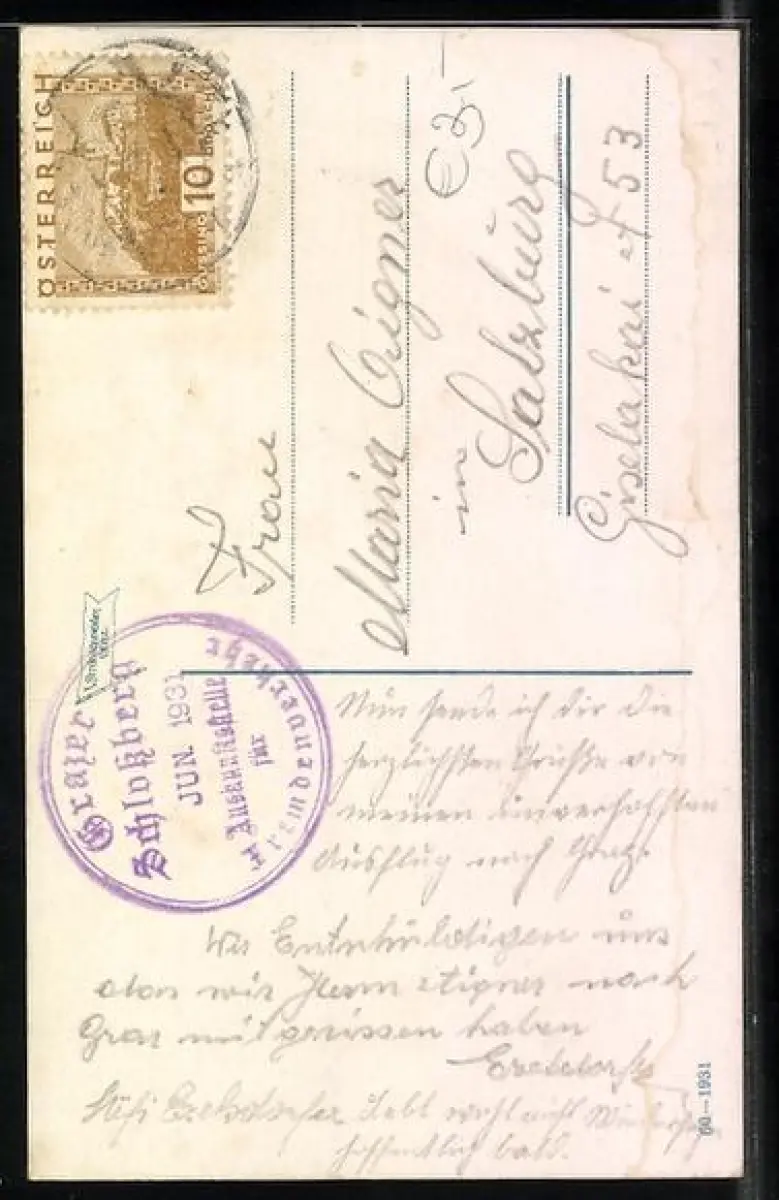 ÖSTERREICH
10
GROSCHEN
GÜSSING
€ 3,-
Frau
Maria Aigner
in
Salzburg
Giselakai No 53
Grazer
Schloßberg
JUN. 1931
Auskunftsstelle
für
Fremdenverkehr
Nun sende ich dir die
herzlichsten Grüße von
meinen unverhofften
Ausflug nach Graz.
Wir Entschuldigen uns
das wir Herrn Aigner nach
Graz mitgerissen haben
Lebt wohl auf
hoffentlich bald.
60-1931